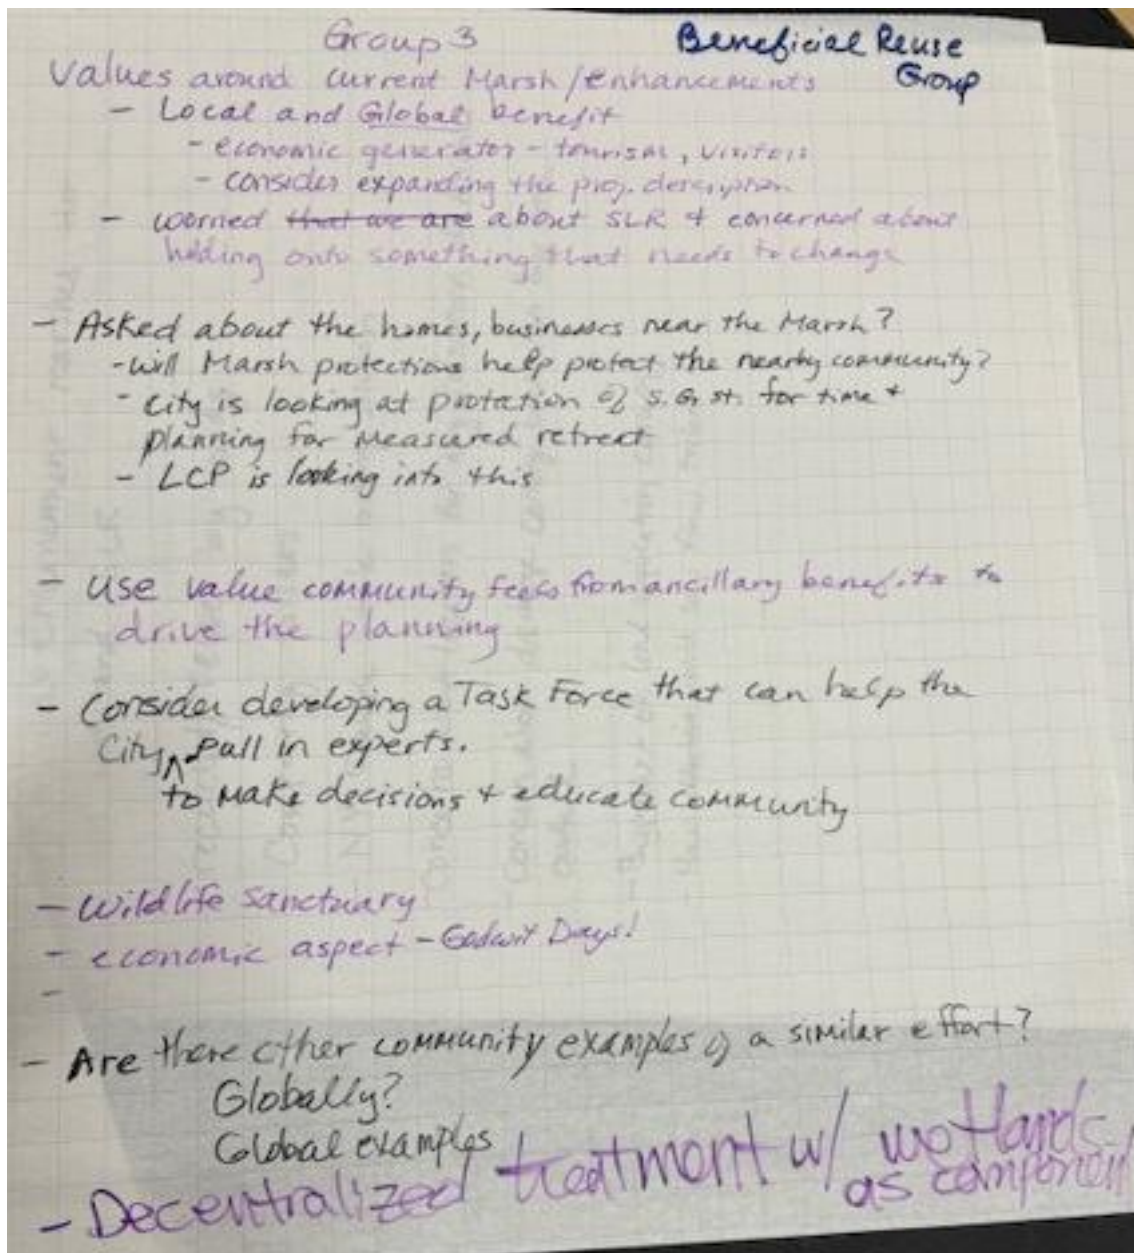 Group 3
Beneficial Reuse
Group
Values around current Marsh/enhancements
- Local and Global benefit
- economic generator - tourism, visitors
- consider expanding the proj. description
- worried that we are about SLR & concerned about
holding onto something that needs to change
- Asked about the homes, businesses near the Marsh?
- will Marsh protections help protect the nearby community?
- City is looking at protection of S. G. st. for time +
planning for measured retreat
- LCP is looking into this
- Use value community feels from ancillary benefits to
drive the planning
- Consider developing a Task Force that can help the
City, pull in experts.
to make decisions + educate community
- Wildlife sanctuary
- economic aspect - Godwit Days!
-
- Are there other community examples of a similar effort?
Globally?
Global examples
- Decentralized treatment w/ wetlands
as component